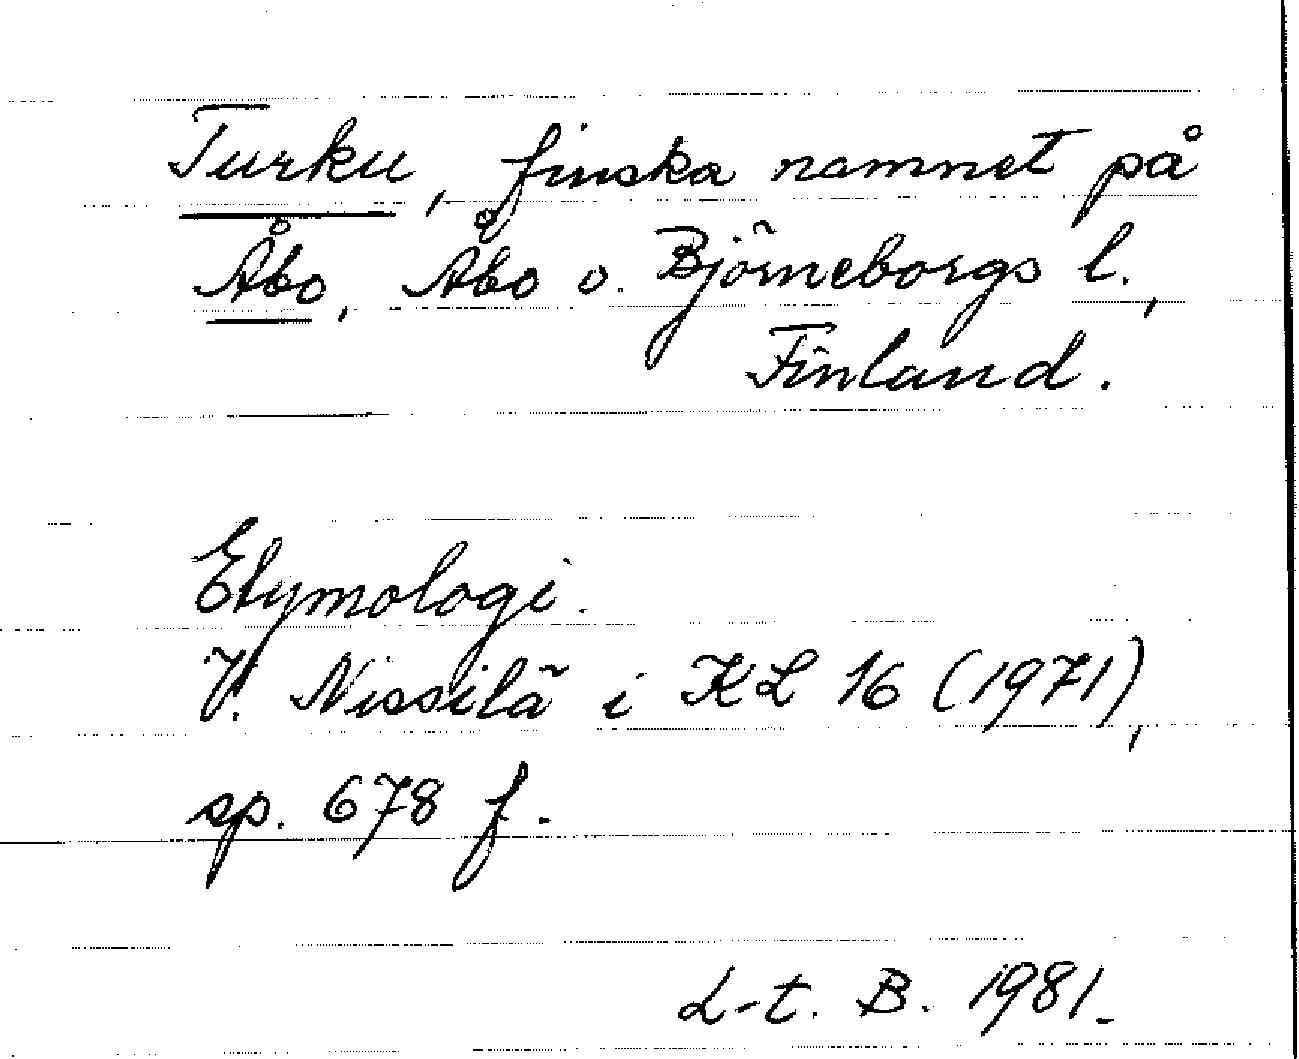 Turku, finska namnet på
Åbo, Åbo o. Björneborgs l.,
Finland.
Etymologi.
V. Nissilä i KL 16 (1971),
sp. 678 f.
L-t. B. 1981.